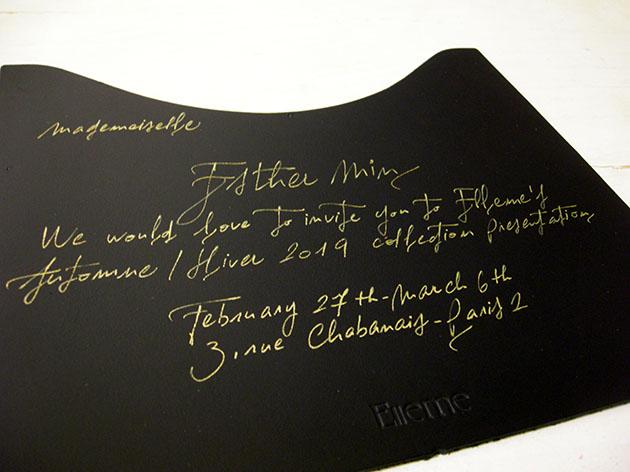 mademoiselle
Esther Min
We would love to invite you to Elleme's
Automne / Hiver 2019 collection presentation
February 27th - March 6th
3, rue Chabanais - Paris 2
Elleme